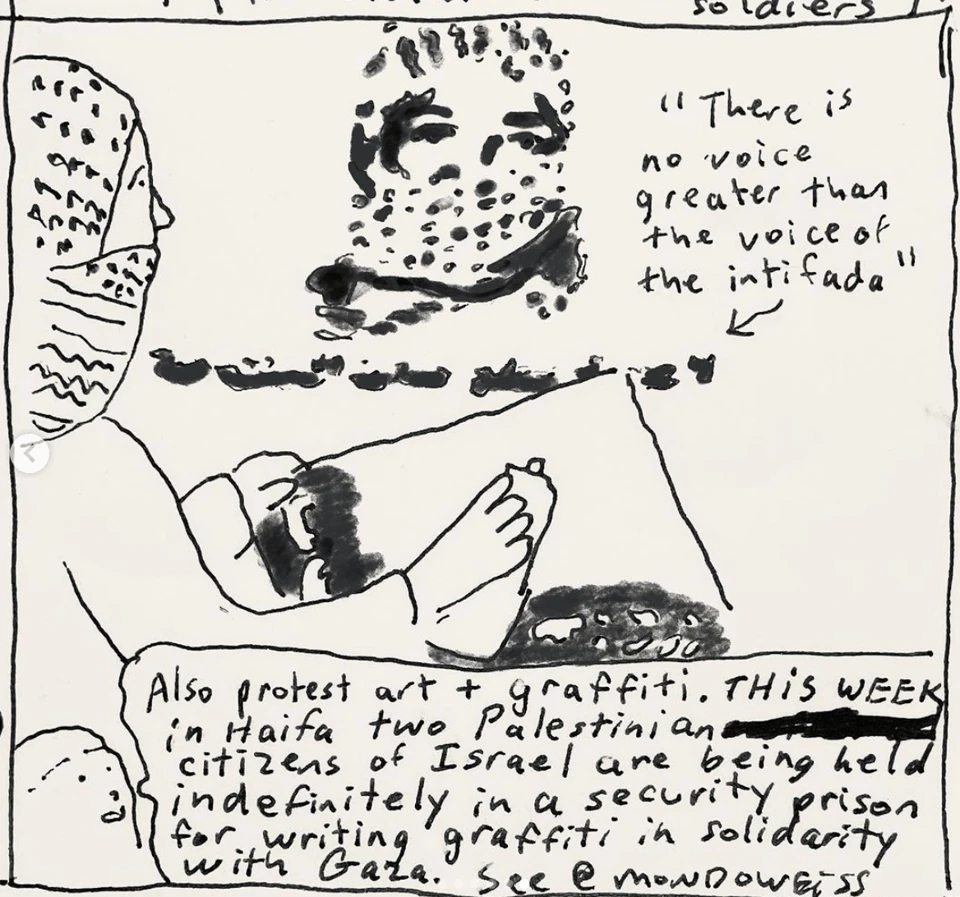 soldiers
"There is
no voice
greater than
the voice of
the intifada"
Also protest art + graffiti. THiS WEEK
in Haifa two Palestinian
citizens of Israel are being held
indefinitely in a security prison
for writing graffiti in solidarity
with Gaza. See @MONDOWEiSS